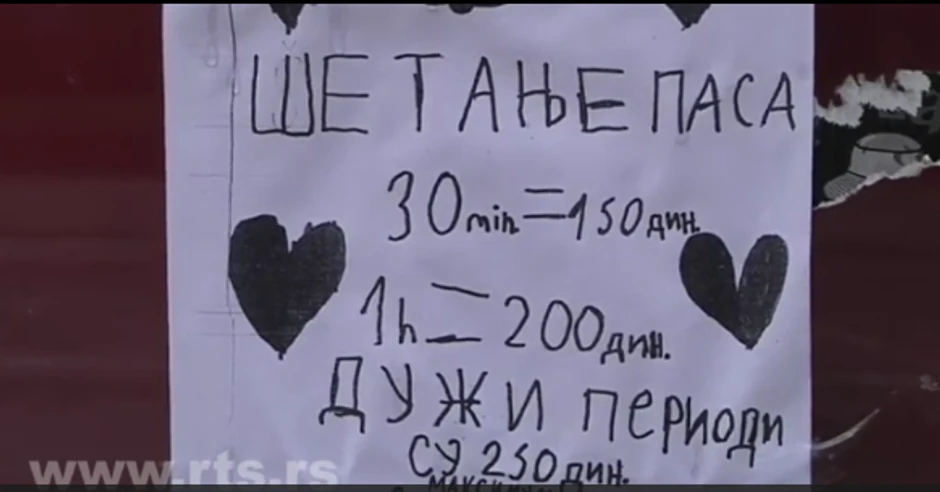 ШЕТАЊЕ ПАСА
30min=150дин.
1h=200дин.
ДУЖИ ПЕРИОДИ
СУ 250дин.
www.rts.rs